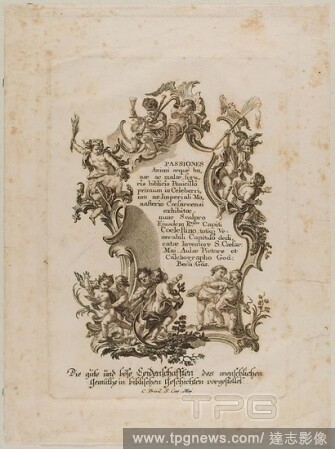 PASSIONES
Animi æque bo,
næ ac malæ, figu,
ris biblicis Penicillo
primum in Celeberri,
mo ac Imperiali Mo,
nasterio Cæsareensi
exhibitæ,
nunc Sculpro
Ejusdem Rmo Capiti
Coelestino, totiq; Ve,
nerabili Capitulo dedi,
catæ Inventore S. Cæsar:
Mai: Aulæ Pictore et
Calchographo God:
Bern: Göz.
Die gute und böse Leidenschafften des menschlichen
Gemüths in biblischen Geschichten vorgestellet.
C. Privil. S. Caes. Maj.
TPG
www.tpgnews.com / 達志影像